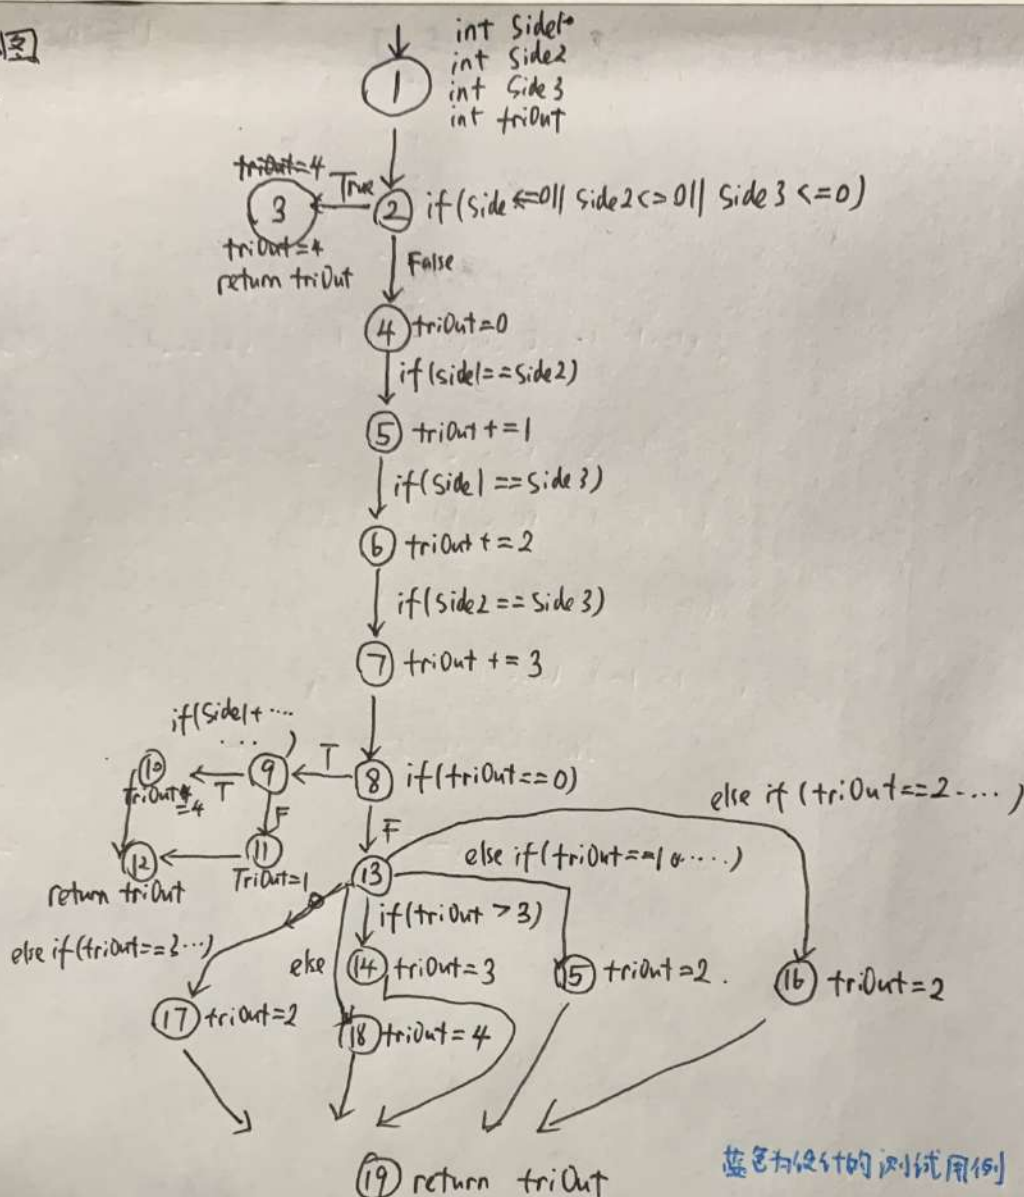 图
int Side1
int Side2
int Side3
int triOut
1
triOut=4
True
3
2
if(side<=0|| side2<=0|| side3<=0)
triOut=4
return triOut
False
4
triOut=0
if(side1==side2)
5
triOut+=1
if(side1==side3)
6
triOut+=2
if(side2==side3)
7
triOut+=3
if(side1+....
...)
10
T
9
T
8
if(triOut==0)
triOut
=4
F
F
else if(triOut==2....)
12
11
13
else if(triOut==1&....)
return triOut
TriOut=1
if(triOut>3)
else if(triOut==3...)
else
14
triOut=3
15
triOut=2.
16
triOut=2
17
triOut=2
18
triOut=4
19
return triOut
蓝色为设计的测试用例